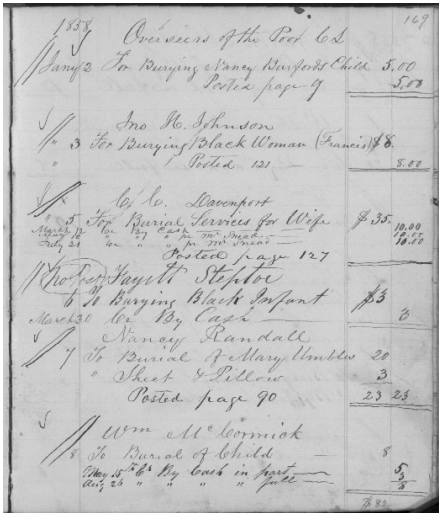 169
1858 Overseers of the Poor
Jany 2 For Burying Nancy Burford's Child 5.00
Posted page 9 5.00
Jno H. Johnson
" 3 For Burying Black Woman (Francis) $8.
" Posted 121 — 8.00
C. C. Davenport
" 5 For Burial Services for Wife $35.
March 12 Cr By Cash — 10.00
" " " pr Mr Snead — 10.00
July 21 Cr " " pr Mr Snead — 10.00
Posted page 127
Fayett Steptoe
6 To Burying Black Infant $3
March 30 Cr By Cash — 3
Nancy Randall
7 To Burial of Mary Umbles 20
" Sheet & Pillow 3
Posted page 90 23 23
Wm McCormick
8 To Burial of Child — 8
May 15th Cr By Cash in part — 5
Aug 26 " " " " full — 3
8
$82